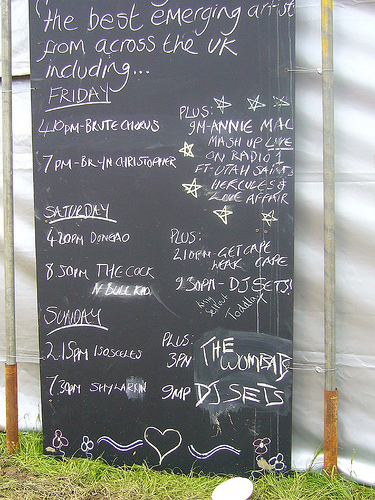 the best emerging artist
from across the uk
including...
FRIDAY
4.10PM - BRUTE CHORUS
7PM - BRYN CHRISTOPHER
PLUS:
9PM - ANNIE MAC
MASH UP LIVE
ON RADIO 1
FT - UTAH SAINTS
HERCULES &
LOVE AFFAIR
SATURDAY
4.20PM DONEAO
8.50PM THE COCK
N BULL KID
PLUS:
2.10PM - GET CAPE
WEAR CAPE
9.30PM - DJ SETS!
Toddla T
SUNDAY
2.15PM ISOSCELES
7.30PM SHY LARKIN
PLUS:
3PM THE WOMBATS
9PM DJ SETS